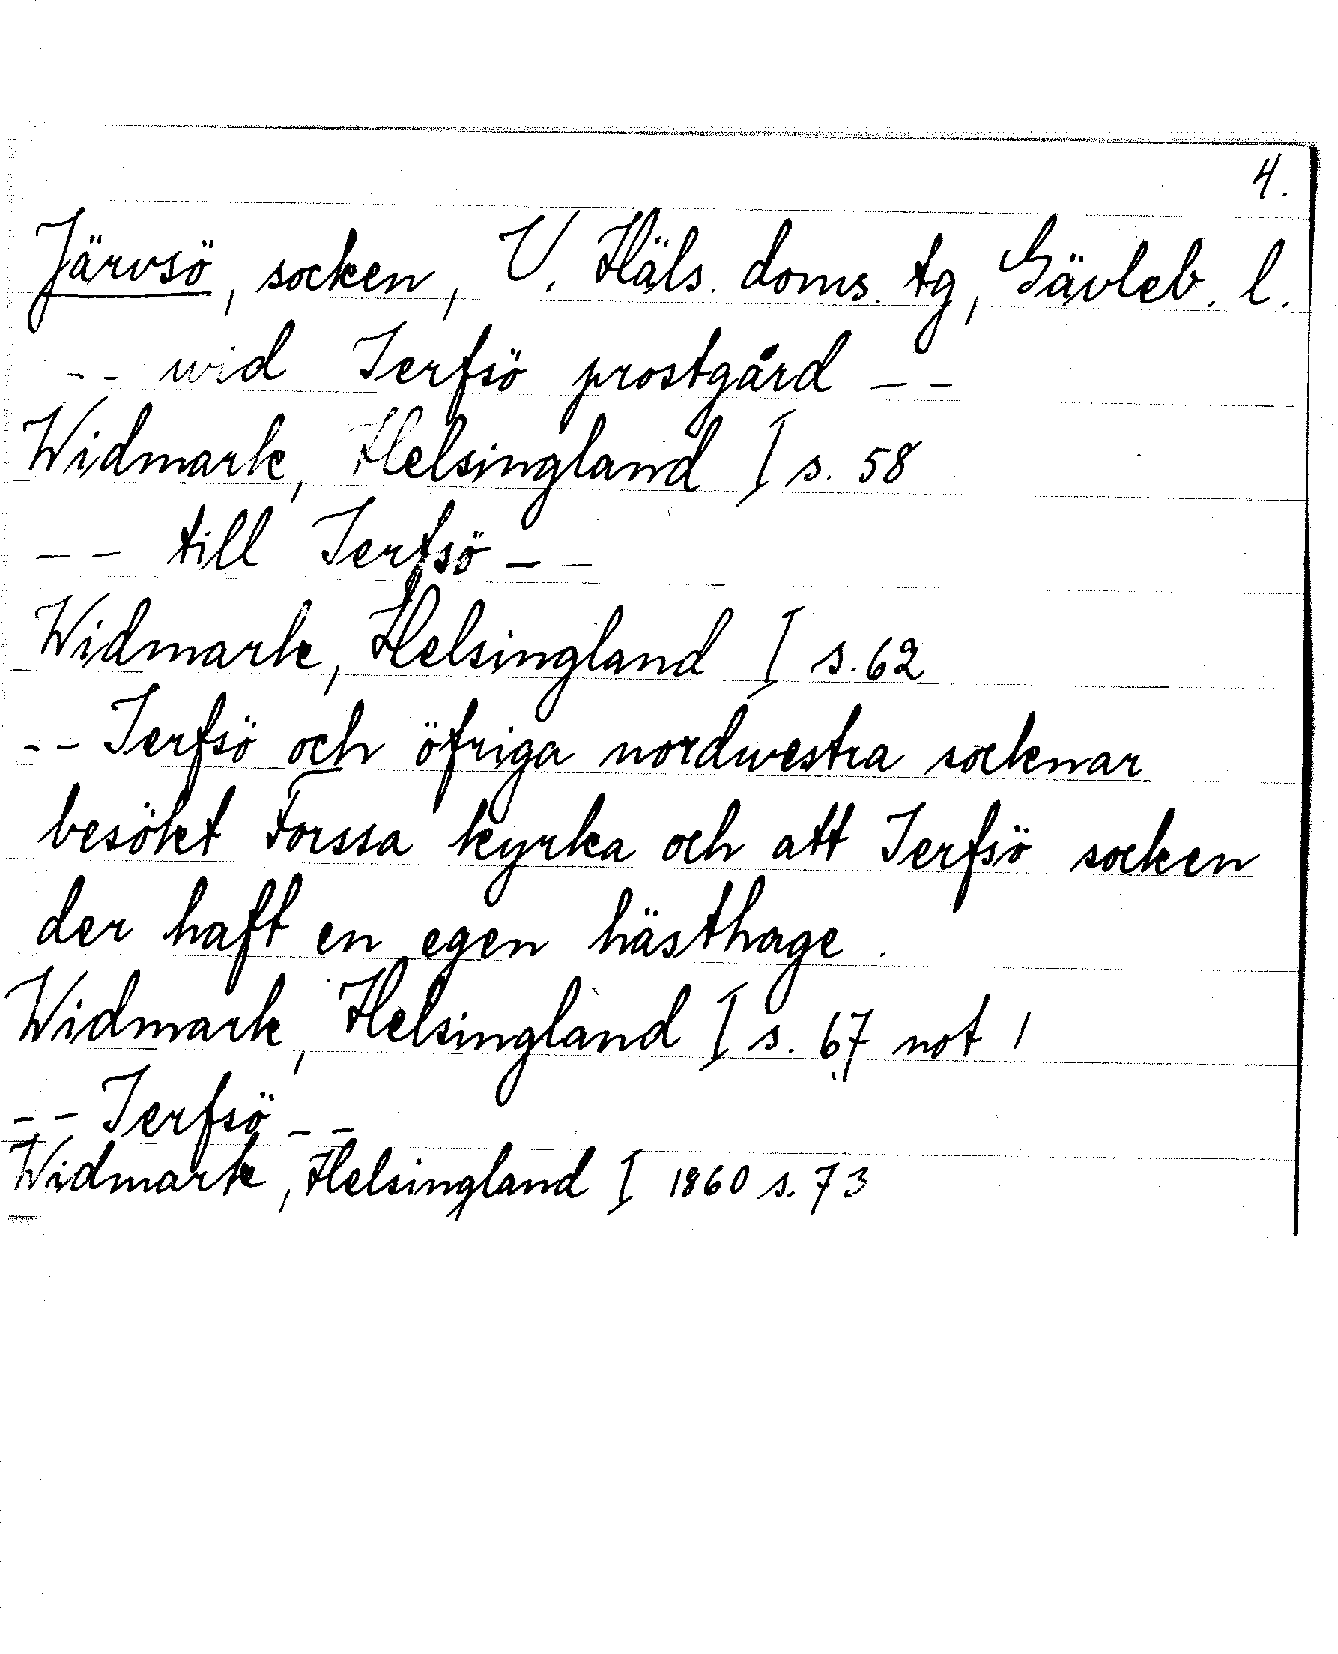 4.
Järvsö, socken, V. Häls. doms. tg, Gävleb. l.
-- wid Jerfsö prostgård --
Widmark, Helsingland I s. 58
-- till Jerfsö --
Widmark, Helsingland I s. 62
-- Jerfsö och öfriga nordwestra socknar
besökt Forssa kyrka och att Jerfsö socken
der haft en egen hästhage.
Widmark, Helsingland I s. 67 not 1
-- Jerfsö --
Widmark, Helsingland I 1860 s. 73